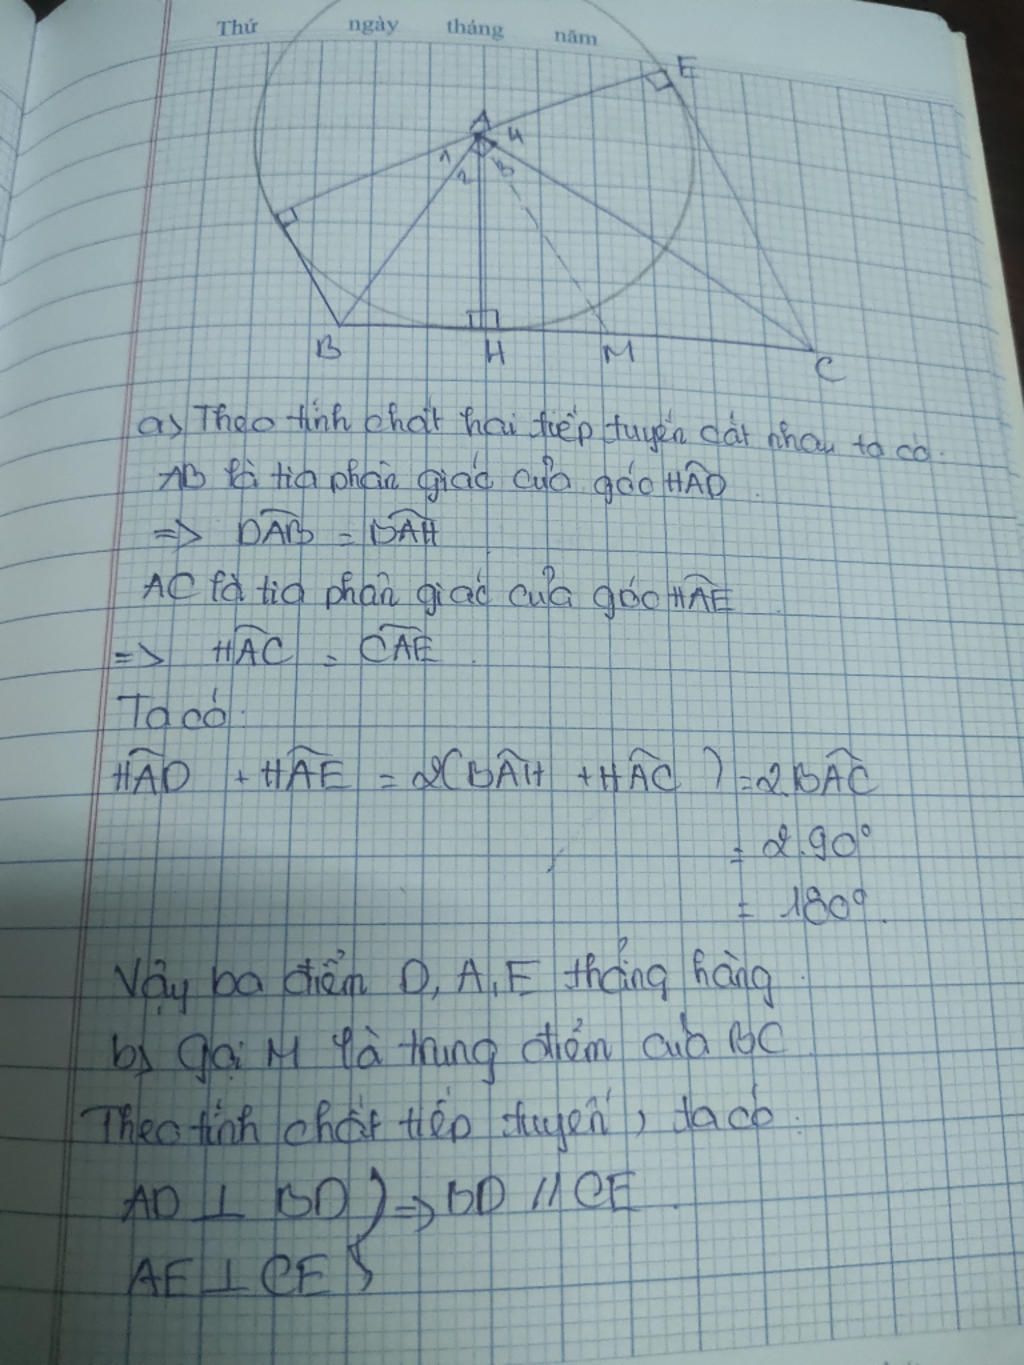 Thứ ngày tháng năm
E
A
4
1
2
3
B H M C
a) Theo tính chất hai tiếp tuyến cắt nhau ta có.
AB là tia phân giác của góc HAD.
=> DAB = BAH
AC là tia phân giác của góc HAE
=> HAC = CAE.
Ta có:
HAD + HAE = 2(BAH + HAC) = 2.BAC
= 2.90°
= 180°.
Vậy ba điểm D, A, E thẳng hàng.
b) gọi M là trung điểm của BC
Theo tính chất tiếp tuyến, ta có:
AD ⊥ BD } => BD // CE.
AE ⊥ CE